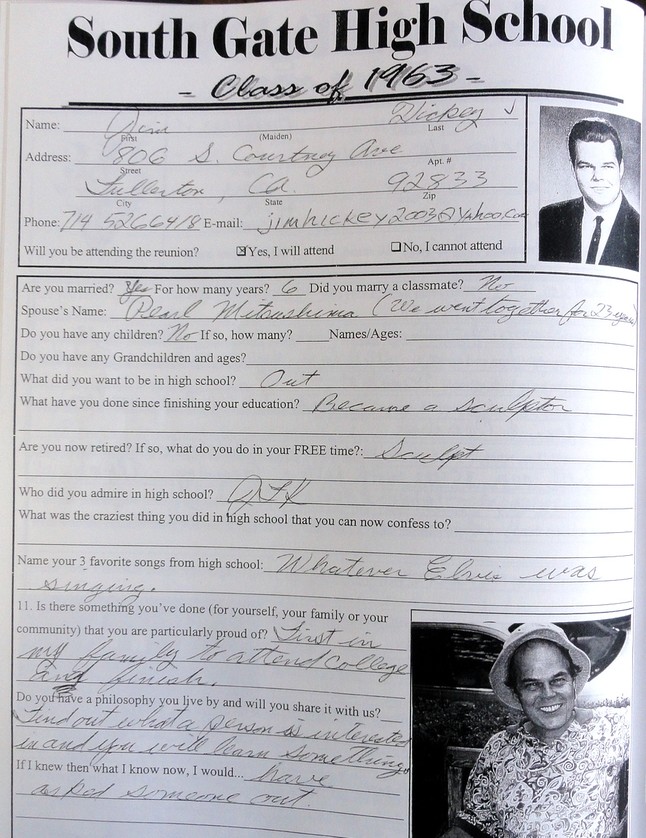 South Gate High School
- Class of 1963 -
Name: Jim Hickey ✓
First (Maiden) Last
Address: 806 S. Courtney Ave
Street Apt. #
Fullerton, Ca. 92833
City State Zip
Phone: 714 5266418 E-mail: jimhickey2003@Yahoo.Com
Will you be attending the reunion? ☒Yes, I will attend ☐No, I cannot attend
Are you married? Yes For how many years? 6 Did you marry a classmate? No
Spouse's Name: Pearl Mitsushima (We went together for 23 years)
Do you have any children? No If so, how many? Names/Ages:
Do you have any Grandchildren and ages?
What did you want to be in high school? Out
What have you done since finishing your education? Became a sculptor
Are you now retired? If so, what do you do in your FREE time?: Sculpt
Who did you admire in high school? JFK
What was the craziest thing you did in high school that you can now confess to?
Name your 3 favorite songs from high school: Whatever Elvis was
singing.
11. Is there something you've done (for yourself, your family or your
community) that you are particularly proud of? First in
my family to attend college
and finish.
Do you have a philosophy you live by and will you share it with us?
Find out what a person is interested
in and you will learn something
If I knew then what I know now, I would... have
asked someone out.